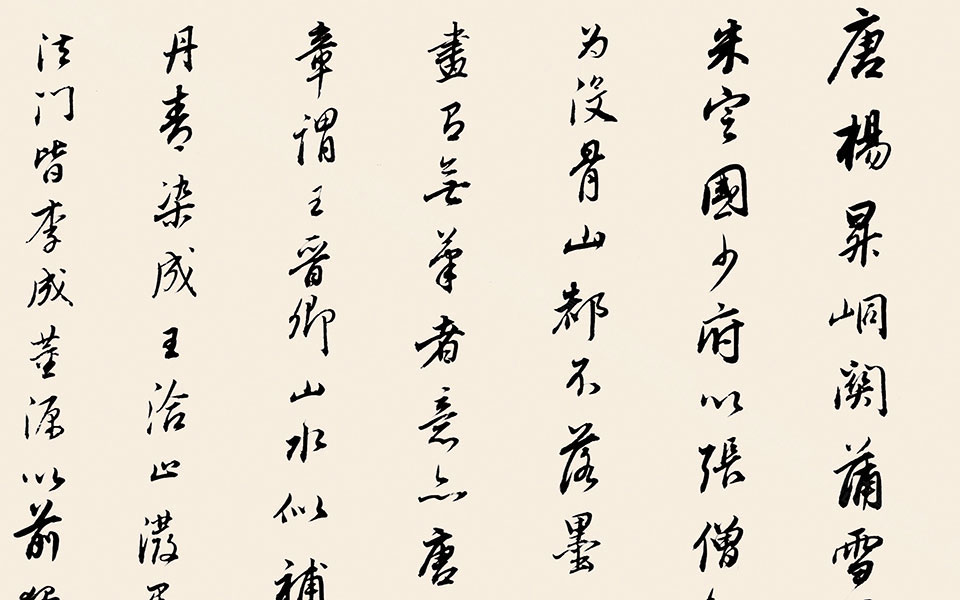 唐楊昇峒關蒲雪
朱定國少府以張僧
为沒骨山都不落墨
畫無筆者意亦唐
章謂王晉卿山水似補
丹青染成王洽止潑
法门皆李成董源以前